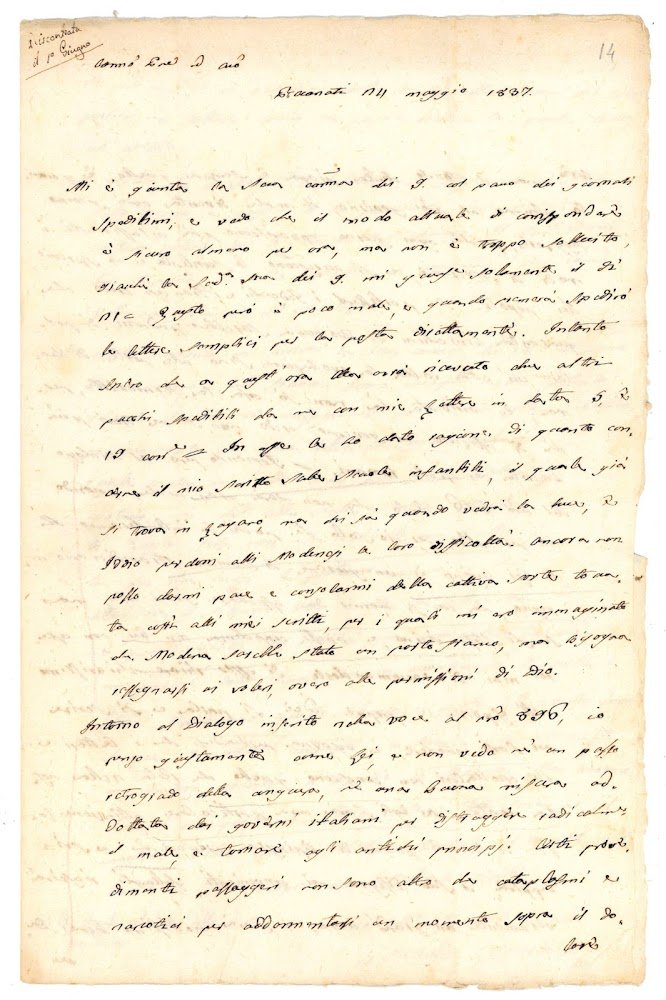 Riscontrata
il p° Giugno
14
Recanati 14 maggio 1837.
Mi è giunta la Sua comma dei 9. col pacco dei giornali
speditimi, e vedo che il modo attuale di corrispondere
è sicuro almeno per ora, ma non è troppo sollecito,
giacché la Sua dei 9. mi giunse solamente il dì
Questo però è poco male, e quando premerà spedirò
le lettere semplici per la posta direttamente. Intanto
spero che a quest'ora avrà ricevuto due altri
pacchi speditili da me con mie lettere in data 5, e
In esse le ho dato ragione di quanto con-
cerne il mio scritto sulle Scuole infantili, il quale già
si trova in Lugano, ma chi sa quando vedrà la luce, e
Iddio perdoni alli Modenesi le loro difficoltà. Ancora non
posso darmi pace e consolarmi della cattiva sorte tocca-
ta costì alli miei scritti, per i quali mi ero immaginato
che Modena sarebbe stato un porto franco, ma bisogna
rassegnarsi ai voleri, ovvero alle permissioni di Dio.
Intorno al Dialogo inserito nella voce al nro 896, io
penso giustamente come Lei, e non vedo nè un passo
retrogrado della, nè una buona misura ad-
dottata dai governi italiani per distruggere radicalme.
il male, e tornare agli antichi principj. Certi prove-
dimenti passaggeri non sono altro che cataplasmi e
narcotici per addormentarsi un momento sopra il do-
lore